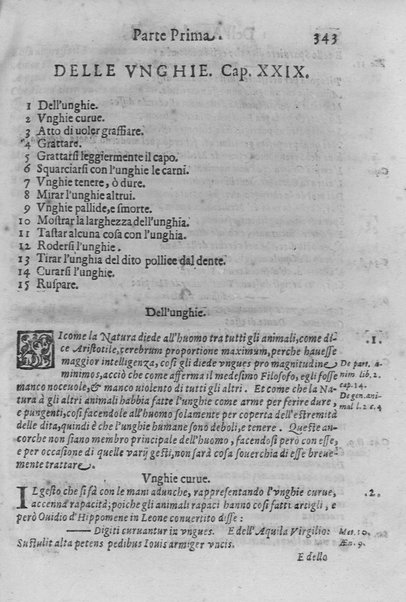 Parte Prima. 343
DELLE VNGHIE. Cap. XXIX.
1 Dell'unghie.
2 Vnghie curue.
3 Atto di uoler graffiare.
4 Grattare.
5 Grattarsi leggiermente il capo.
6 Squarciarsi con l'unghie le carni.
7 Vnghie tenere, ò dure.
8 Mirar l'unghie altrui.
9 Vnghie pallide, e smorte.
10 Mostrar la larghezza dell'unghia.
11 Tastar alcuna cosa con l'unghia.
12 Rodersi l'unghie.
13 Tirar l'unghia del dito pollice dal dente.
14 Curarsi l'unghie.
15 Ruspare.
Dell'unghie.
SIcome la Natura diede all'huomo tra tutti gli animali, come di- .1.
ce Aristotile, cerebrum proportione maximum, perche hauesse
maggior intelligenza, così gli diede vngues pro magnitudine De part. a-
minimos, acciò che come afferma il medesimo Filosofo, egli fosse nim. lib. 2.
manco noceuole, & manco uiolento di tutti gli altri. Et come che la Na- cap. 14.
tura à gli altri animali habbia fatte l'unghie come arme per ferire dure, De gen. ani
e pungenti, così facendole all'huomo solamente per coperta dell'estremità mal l. 2. c. 4
delle dita, quindi è che l'unghie humane sono deboli, e tenere. Queste an-
corche non siano membro principale dell'huomo, facendosi però con esse,
e per occasione di quelle varij gesti, non sarà cosa souerchia di esse breue-
mente trattare.
Vnghie curue.
IL gesto che si fà con le mani adunche, rappresentando l'vnghie curue, .2.
accenna rapacità; poiche gli animali rapaci hanno così fatti artigli, e
però Ouidio d'Hippomene in Leone conuertito disse:
—— Digiti curuantur in vngues. E dell'Aquila Virgilio: Met. 10.
Sustulit alta petens pedibus Iouis armiger vncis. Æn. 9.
E dello